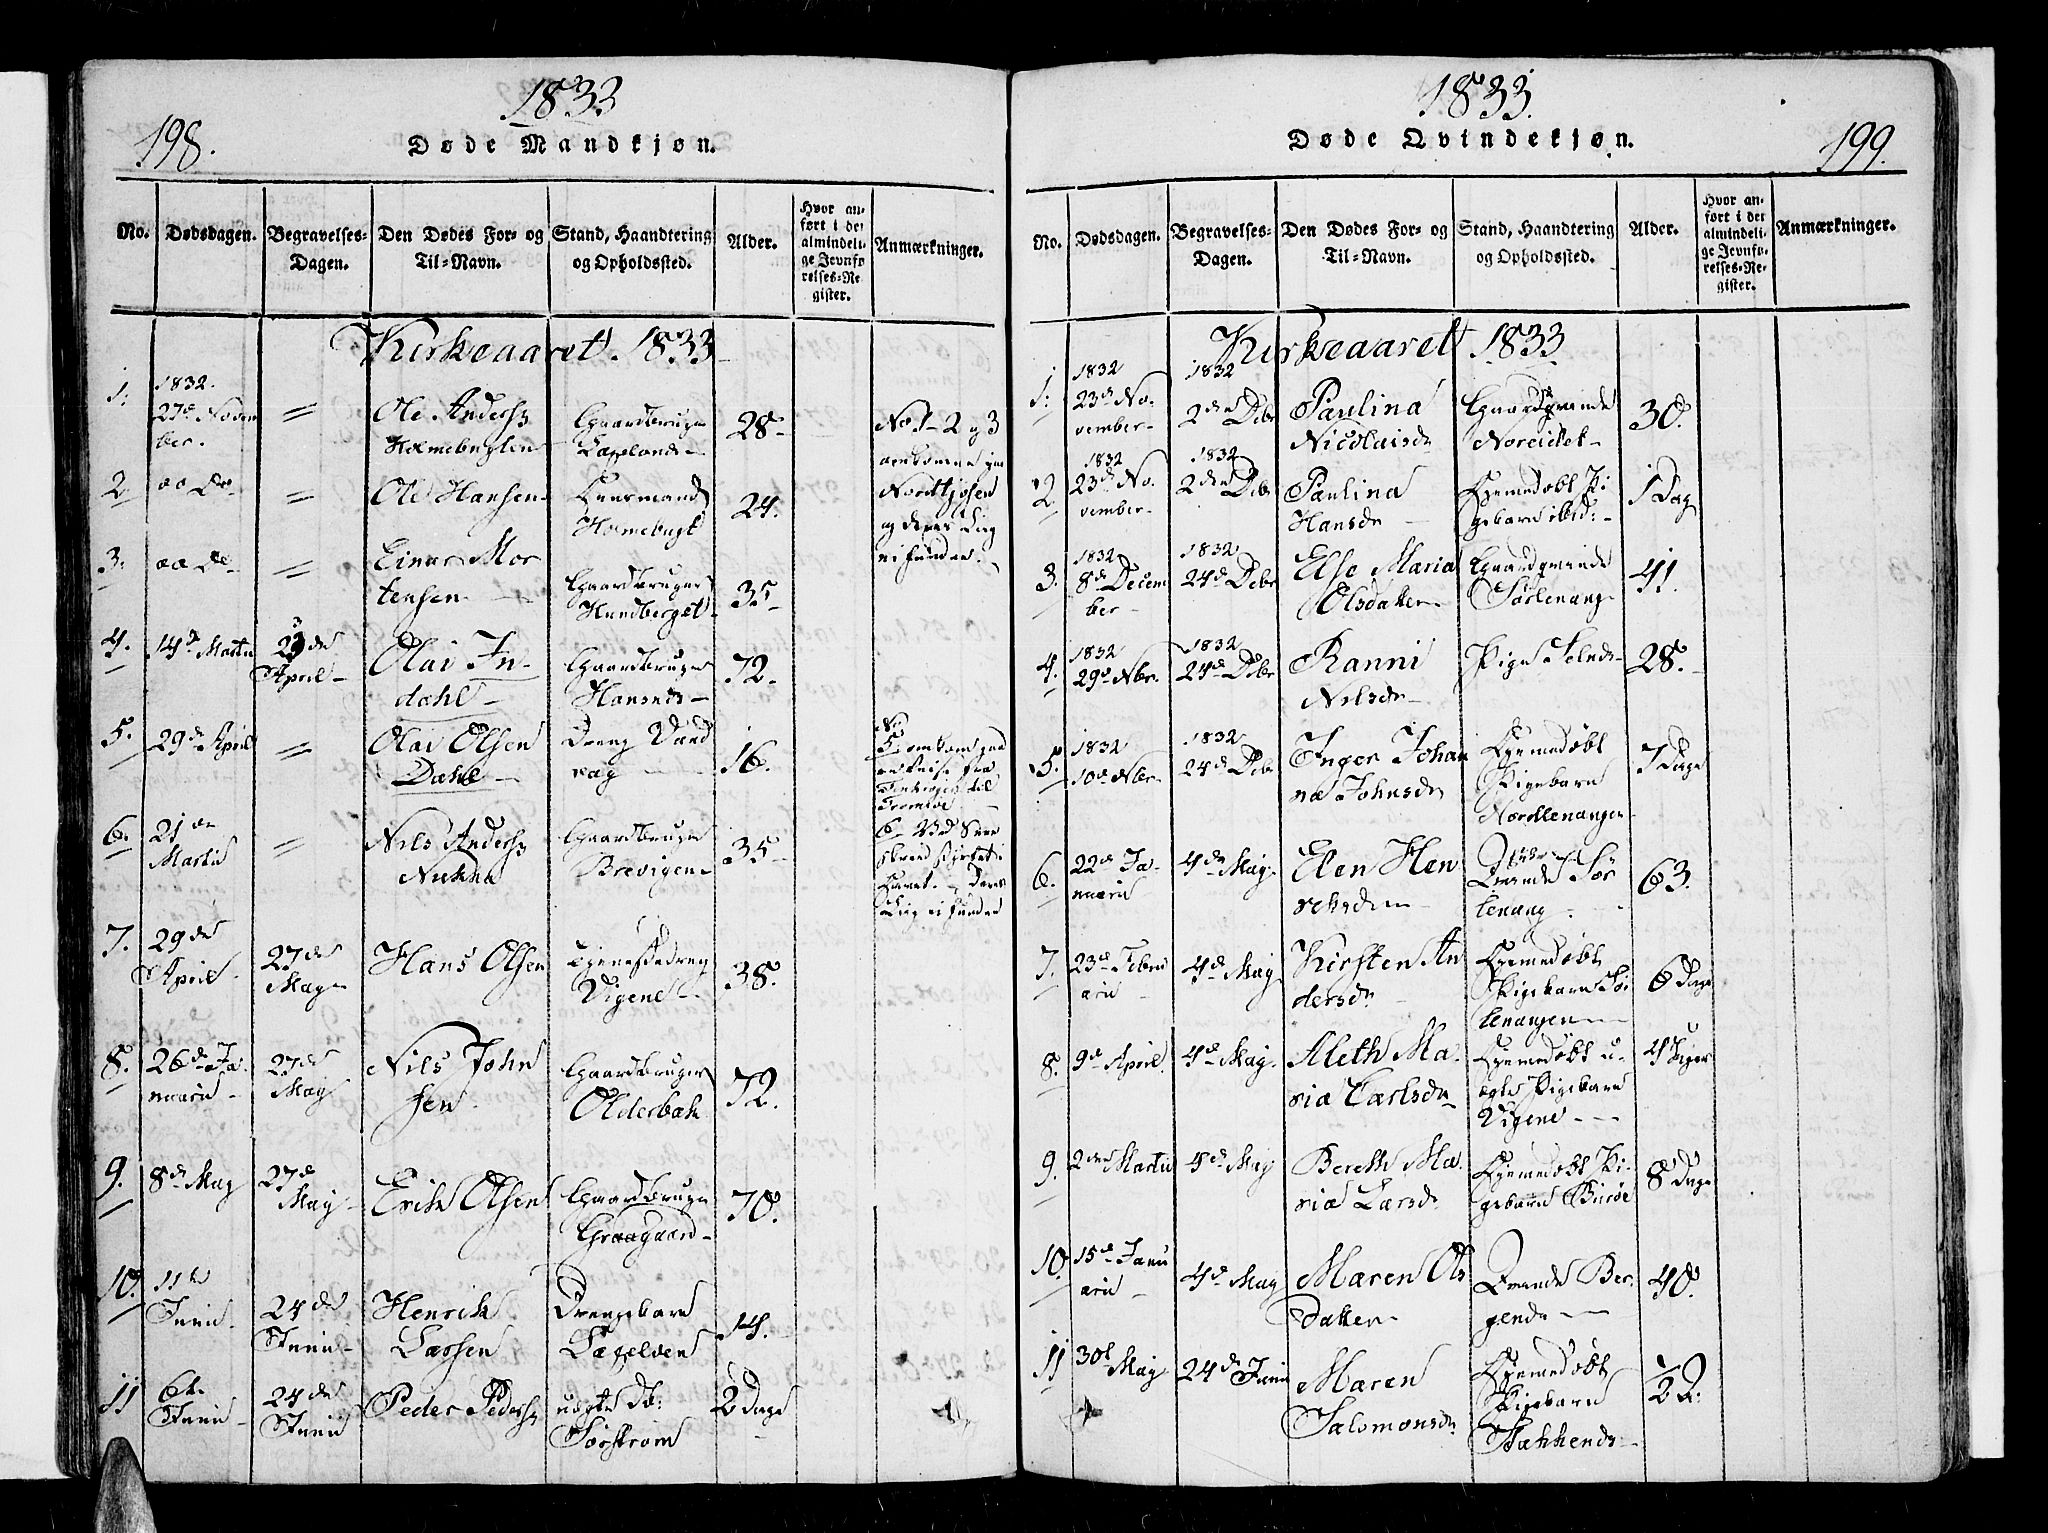 198.
1833
Døde Mandkjøn.
No.
Dødsdagen.
Begravelses-
Dagen.
Den Dødes For- og
Til-Navn.
Stand, Haandtering
og Opholdssted.
Alder.
Hvor an-
ført i det
almindeli-
ge Jevnfø-
relses-Re-
gister.
Anmærkninger.
Kirkeaaret 1833
1.
1832.
27de Novem
ber.
Ole Anders
Gaardbruger
28
No 1 2 og 3
2
Ole Hansen
Huusmand
24.
3.
Einar Mor
tensen
Gaardbruger
Hundberget
35
4.
14de Martii
23de
April
Olai In-
dahl
Gaardbruger
Hansnes
72.
5.
29de April
Olai Olsen
Dahl
Dreng Vand
vag
16.
6.
21de
Martii
Nils Anders
Gaardbruger
Brevigen
35
7.
29de
April
27de
May
Hans Olsen
Vigene
38.
8.
26de Ja
nuarii
27de
May
Nils John
sen
Gaardbruger
Olderbak
72.
9.
8de May
27de
May
Erik Olsen
Gaardbruger
Graagaard
70.
10.
11te
Junii
24de
Junii
Henrik
Larsen
Drengebarn
14.
11
6te
Junii
24de
Junii
Peder Peders
Sørstrøm
2 Dage
1833.
Døde Qvindekjøn.
199.
No.
Dødsdagen.
Begravelses-
Dagen.
Den Dødes For- og
Til-Navn.
Stand, Haandtering
og Opholdssted.
Alder.
Hvor an-
ført i det
almindeli-
ge Jevnfø-
relses-Re-
gister.
Anmærkninger.
Kirkeaaret 1833
1.
1832
23de No-
vember
1832
2den Dcbr
Paulina
Nicolaisdr
Gaardqvinde
Nordeidet
30.
2
1832
23de No-
vember
1832
2den Dcbr
Paulina
Hansdr
Hjemedøbt Pi
gebarn ibid:
1 Dag
3.
1832
8de Decem
ber
1832
24de Dcbr
Else Maria
Olsdatter
Gaardqvinde
Sørlenang
41.
4.
1832
29de Nbr
1832
24de Dcbr
Ranni
Nilsdr
Pige
28.
5.
1832
10de Nbr
1832
24de Dcbr
Inger Johan
na Johnsdr
Hjemedøbt
Pigebarn
Nordlenangen
7 Dage
6.
22de Ja-
nuarii
4de May
Elen Hen
richsdr
Qvinde Sør
lenang
63.
7.
23de Febru
arii
4de May
Kirsten An
dersdr
Hjemedøbt
Pigebarn Sør
lenangen
6 Dage
8.
9de April
4de May
Aleth Ma-
ria Carlsdr
Hjemedøbt u-
ægte Pigebarn
Vigene
4 Uger
9.
2den Martii
4de May
Bereth Ma-
ria Larsdr
Hjemedøbt Pi-
gebarn
8 Dage
10.
15de Janu
arii
4de May
Maren Ols
datter
Qvinde Ber-
gende
40.
11
30te
May
24de Junii
Maren
Salomonsdr
Hjemedøbt
Pigebarn